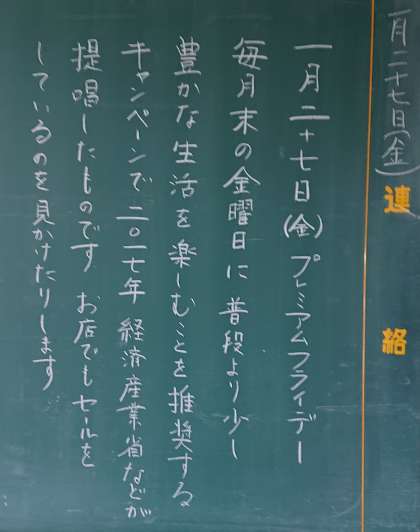 一月二十七日(金)
連絡
一月二十七日(金) プレミアムフライデー
毎月末の金曜日に 普段より少し
豊かな生活を楽しむことを推奨する
キャンペーンで 二〇一七年 経済産業省などが
提唱したものです お店でもセールを
しているのを見かけたりします